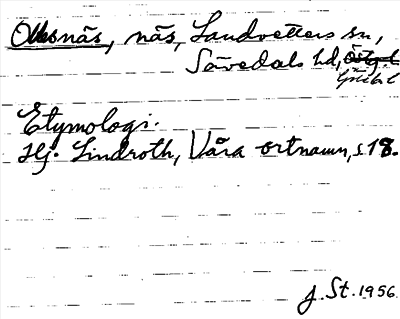 Ollsnäs, näs, Landvetters sn,
Sävedals hd, Östg. l
Götebl
Etymologi.
Hj. Lindroth, Våra ortnamn, s. 18.
J. St. 1956.